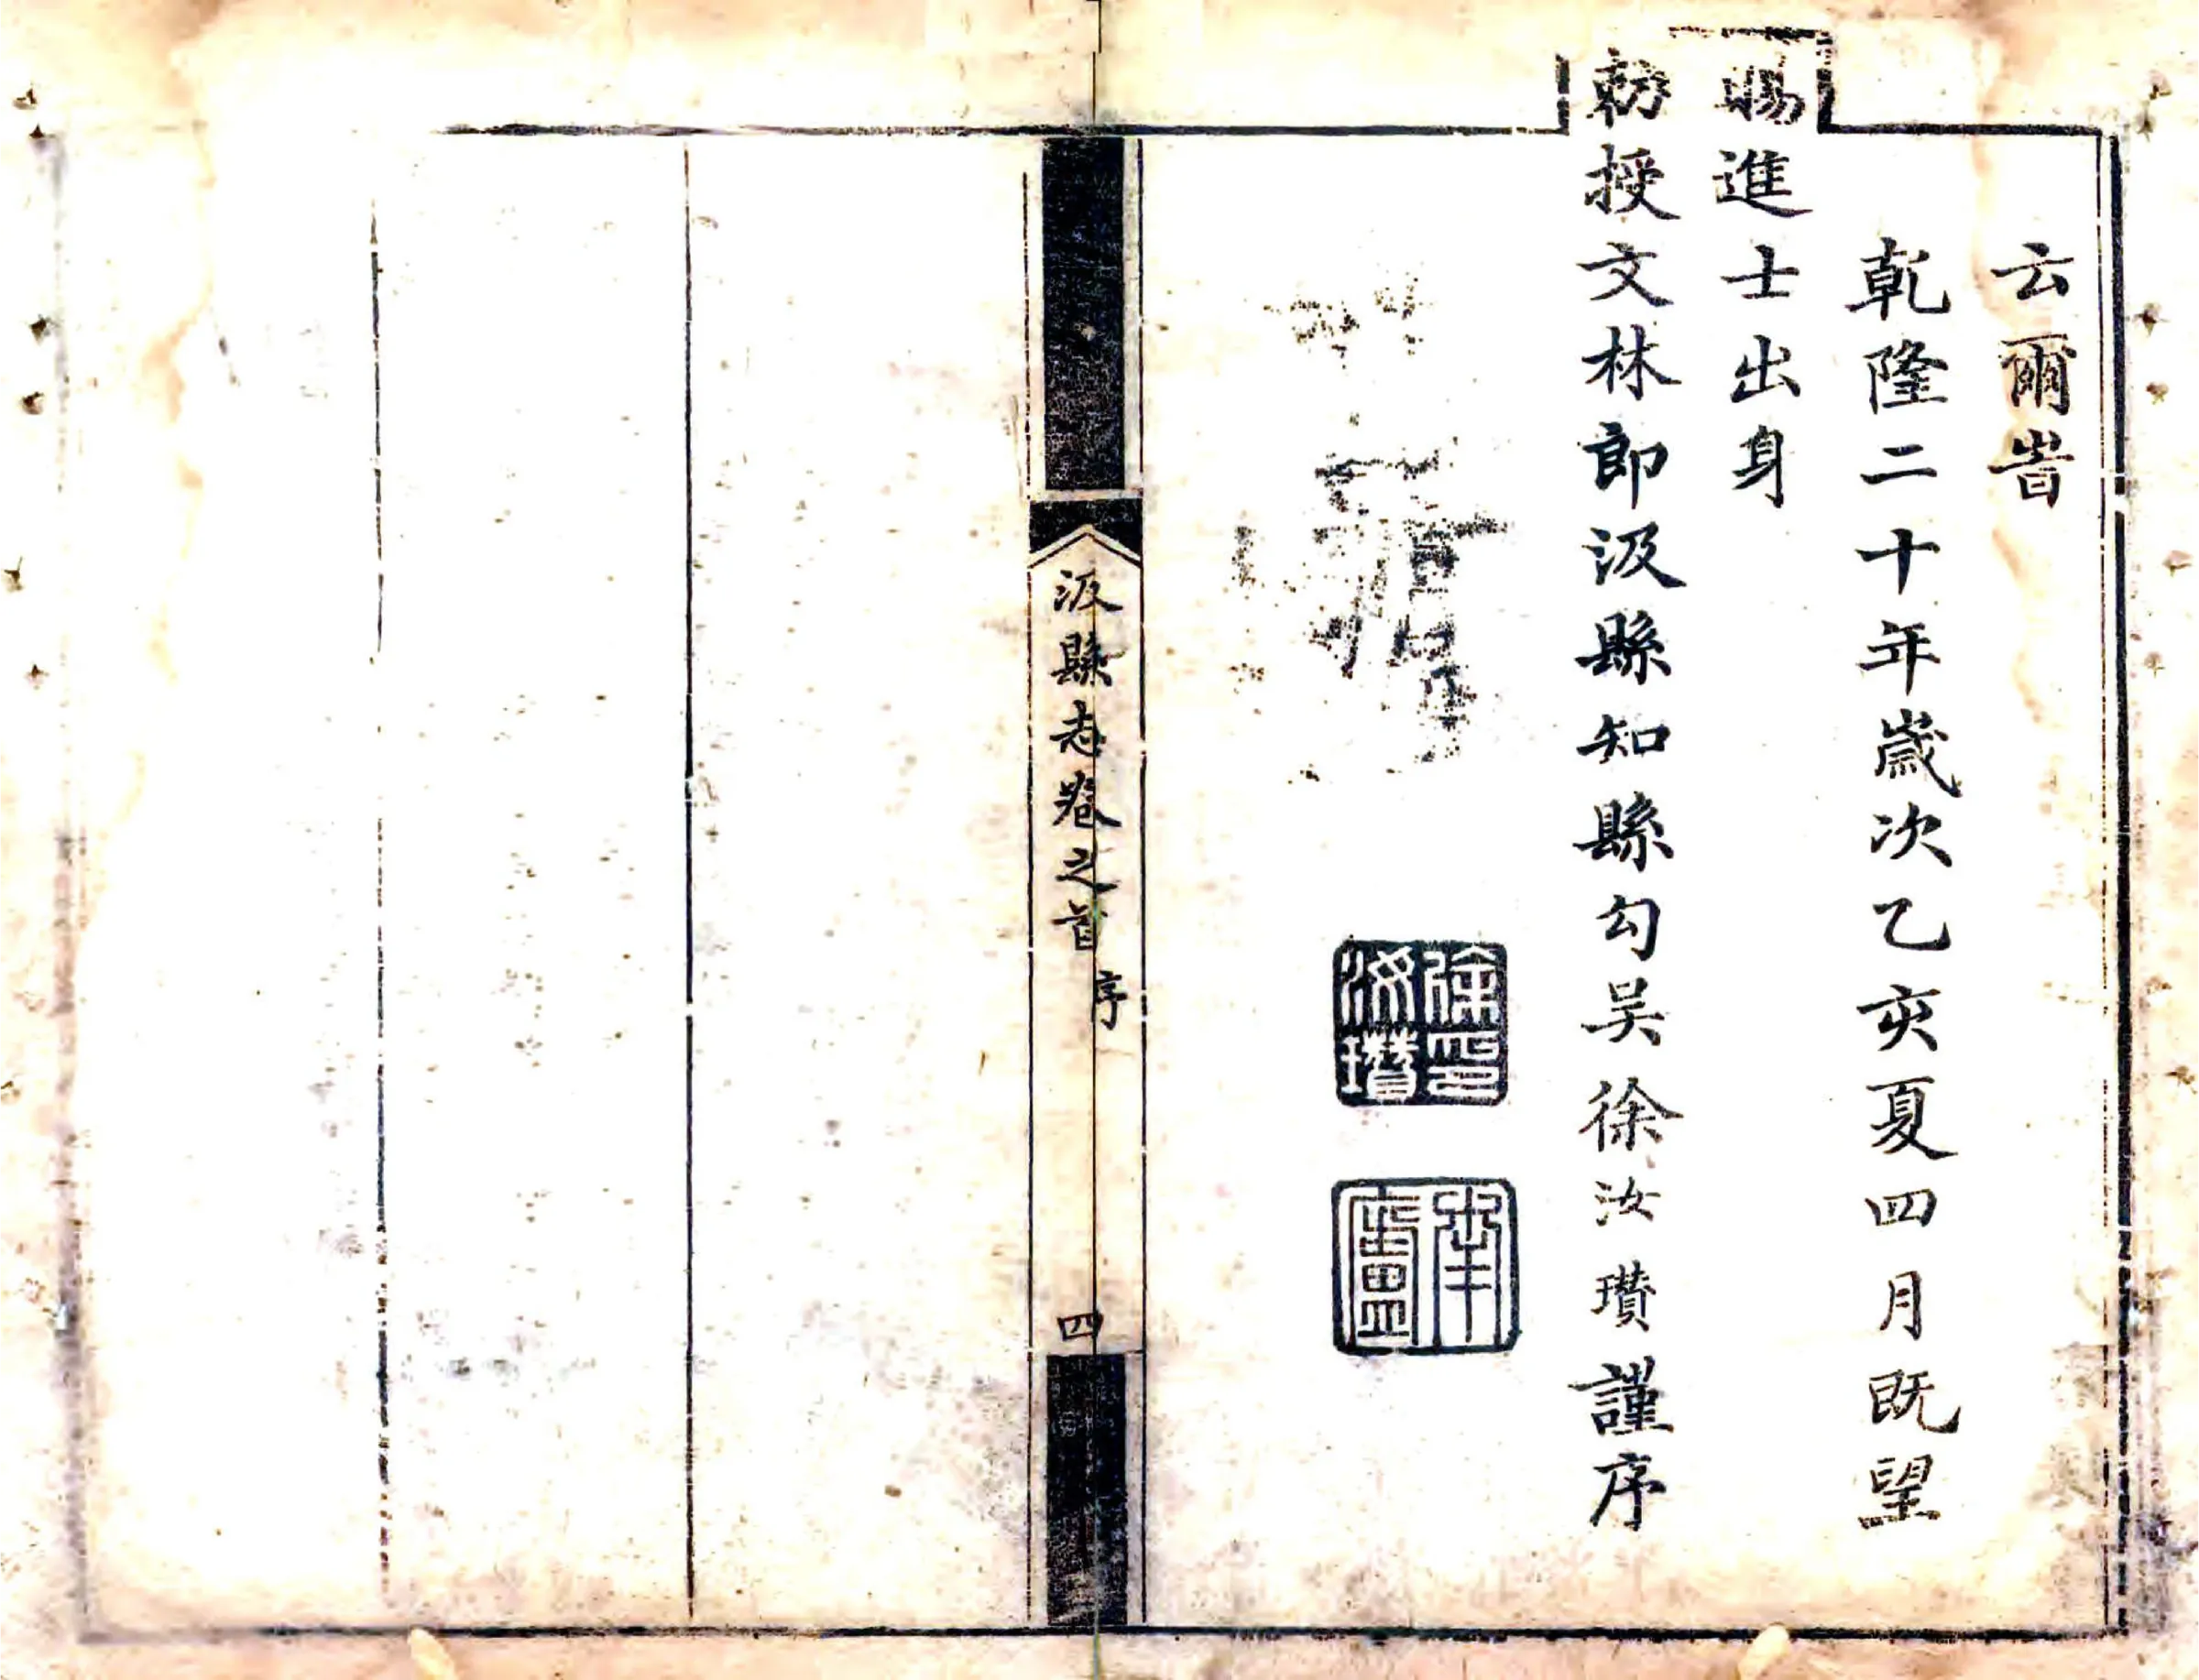 云爾旹
乾隆二十年歲次乙亥夏四月既望
賜進士出身
勅授文林郎汲縣知縣勾吳徐汝瓚謹序
徐印汝瓚
汲縣志卷之首
序
四